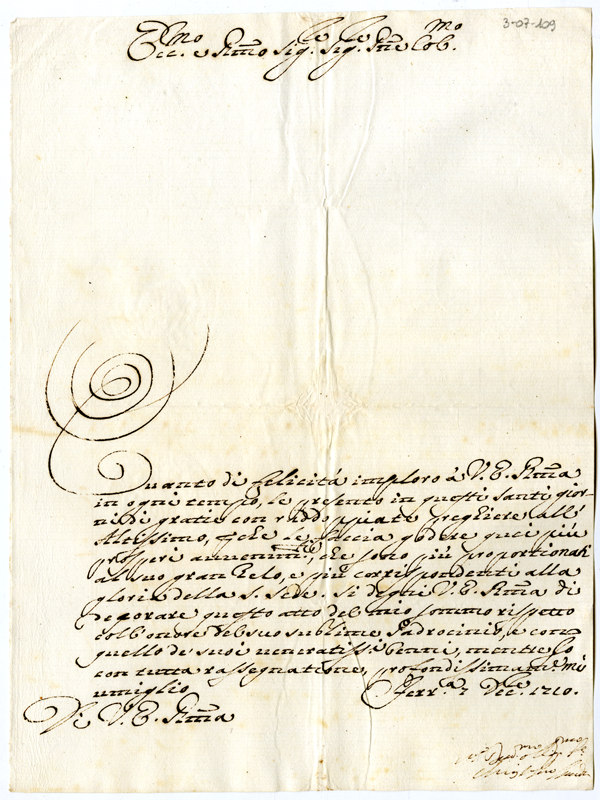 3-07-109
Ecc.mo e Rmo Sig.le Sig.le Pne Col.mo
Quanto di felicità imploro à V. E. Rma
in ogni tempo, le presento in questi santi gior-
ni di gratie con raddoppiate preghiere all'
Altissimo, pche le faccia godere quei più
prosperi avvenim.ti, che sono più proportionati
al suo gran zelo, e più corrispondenti alla
gloria della S. Sede. Si degni V. E. Rma di
decorare questo atto del mio sommo rispetto
coll'onore del suo sublime Padrocinio, e con
quello de' suoi veneratissi Cenni, mentre Io
con tutta rassegnatione, profondissimamte mi
umiglio.
Ferr.a 7 Dec.e 1710.
Di V. E. Rma